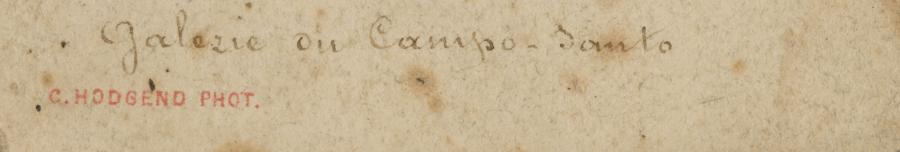 Galerie du Campo-Santo
C. HODGEND PHOT.